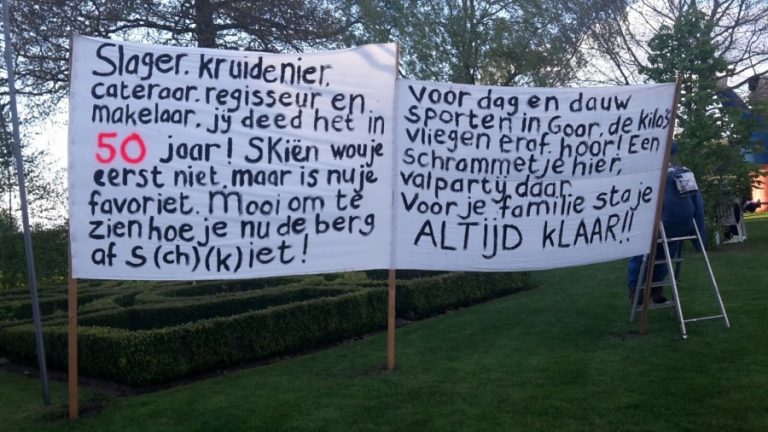 Slager, kruidenier,
cateraar, regisseur en
makelaar, jij deed het in
50 jaar! Skiën wou je
eerst niet, maar is nu je
favoriet. Mooi om te
zien hoe je nu de berg
af s(ch)(k)iet!
Voor dag en dauw
sporten in Goor, de kilo's
vliegen eraf, hoor! Een
schrammetje hier,
valpartij daar
Voor je familie sta je
ALTIJD KLAAR!!